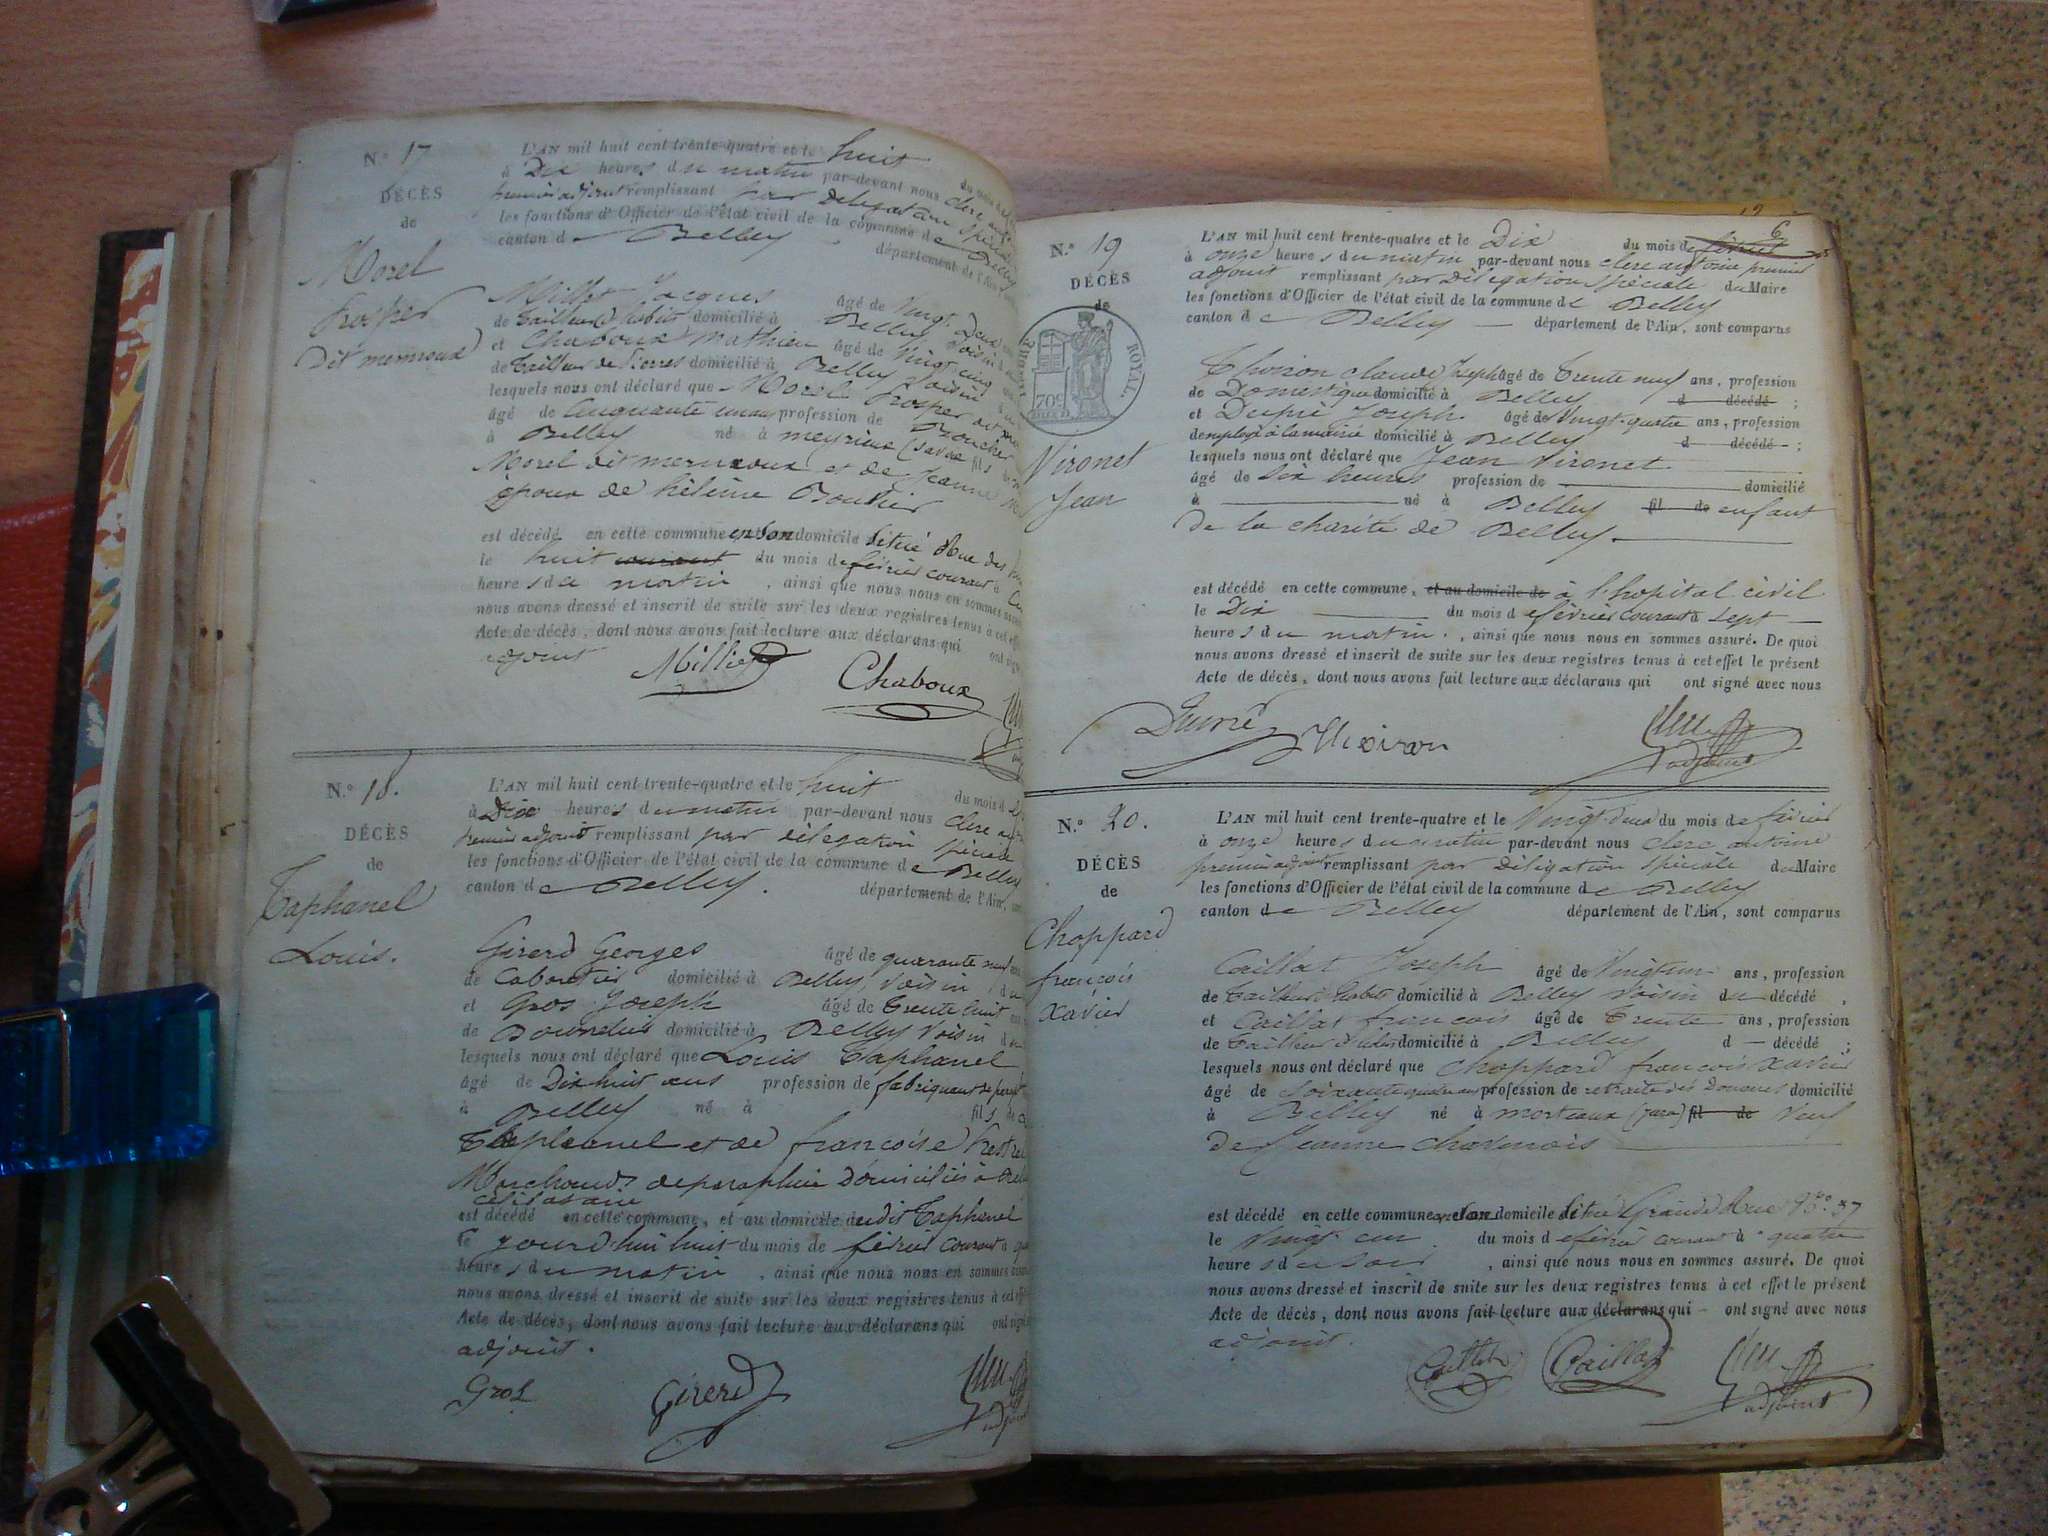 N.º 17
DÉCÈS
de
Morel
Prosper
dit
L'AN mil huit cent trente-quatre et le huit du mois de
à Dix heures du matin par-devant nous clerc
premier adjoint remplissant par délégation spéciale
les fonctions d'Officier de l'état civil de la commune de Belley
canton de Belley département de l'Ain
Jacques âgé de Vingt Deux
de tailleur d'habits domicilié à Belley Voisin
et Chaboux Mathieu âgé de Vingt cinq
de Tailleur de Pierres domicilié à Belley Voisin
lesquels nous ont déclaré que Morel Prosper dit
âgé de Cinquante un ans profession de Boucher
à Belley né à meyrieux (Savoie) fils
Morel dit et de Jeanne
époux de hélène Bouvier
est décédé en cette commune en son domicile situé Rue des
le huit courant du mois de février courant à
heures du matin, ainsi que nous nous en sommes
nous avons dressé et inscrit de suite sur les deux registres tenus à cet
Acte de décès, dont nous avons fait lecture aux déclarans qui ont signé
adjoint
Chaboux
N.º 18.
DÉCÈS
de
Taphanel
Louis.
L'AN mil huit cent trente-quatre et le huit du mois d
à Dix heures du matin par-devant nous clerc
premier adjoint remplissant par délégation spéciale
les fonctions d'Officier de l'état civil de la commune de Belley
canton de Belley. département de l'Ain,
Girerd Georges âgé de quarante neuf
de Cabaretier domicilié à Belley, Voisin du
et Gros Joseph âgé de Trente huit
de Bourrelier domicilié à Belley Voisin du
lesquels nous ont déclaré que Louis Taphanel
âgé de Dix huit ans profession de fabriquant de
à Belley né à fils de
Taphanel et de françoise
Marchands de parapluie domiciliés à
célibataire
est décédé en cette commune, et au domicile dudit Taphanel
le jourd'hui huit du mois de février courant à
heures du matin, ainsi que nous nous en sommes
nous avons dressé et inscrit de suite sur les deux registres tenus à cet
Acte de décès, dont nous avons fait lecture aux déclarans qui ont signé
adjoint.
Gros Girerd adjoint
6
N.º 19
DÉCÈS
de
ROYAL
709
Vironet
Jean
L'AN mil huit cent trente-quatre et le Dix du mois de février
à onze heures du matin par-devant nous clerc antoine premier
adjoint remplissant par délégation spéciale du Maire
les fonctions d'Officier de l'état civil de la commune de Belley
canton de Belley département de l'Ain, sont comparus
Thoiron claude Joseph âgé de Trente neuf ans, profession
de Domestique domicilié à Belley d décédé ;
et Dupré Joseph. âgé de Vingt-quatre ans, profession
d'employé à la mairie domicilié à Belley d décédé ;
lesquels nous ont déclaré que Jean Vironet
âgé de Six heures profession de domicilié
à né à Belley fil de enfant
de la charité de Belley.
est décédé en cette commune, et au domicile de à l'hopital civil
le Dix du mois de février courant à sept
heures du matin., ainsi que nous nous en sommes assuré. De quoi
nous avons dressé et inscrit de suite sur les deux registres tenus à cet effet le présent
Acte de décès, dont nous avons fait lecture aux déclarans qui ont signé avec nous
Thoiron
adjoint
N.º 20.
DÉCÈS
de
Choppard
françois
Xavier
L'AN mil huit cent trente-quatre et le Vingt-deux du mois de février
à onze heures du matin par-devant nous clerc antoine
premier adjoint remplissant par délégation spéciale du Maire
les fonctions d'Officier de l'état civil de la commune de Belley
canton de Belley département de l'Ain, sont comparus
Caillat Joseph âgé de Vingt un ans, profession
de Tailleur d'habits domicilié à Belley Voisin du décédé,
et Caillat françois âgé de Trente ans, profession
de Tailleur d'habits domicilié à Belley d décédé ;
lesquels nous ont déclaré que Choppard françois Xavier
âgé de profession de retraité des Douanes domicilié
à Belley né à morteaux (Jura) fil de Veuf
de Jeanne
est décédé en cette commune en son domicile situé Grande Rue N.º 37
le Vingt un du mois de février courant à quatre
heures du soir, ainsi que nous nous en sommes assuré. De quoi
nous avons dressé et inscrit de suite sur les deux registres tenus à cet effet le présent
Acte de décès, dont nous avons fait lecture aux déclarans qui ont signé avec nous
adjoint.
Caillat Caillat
adjoint